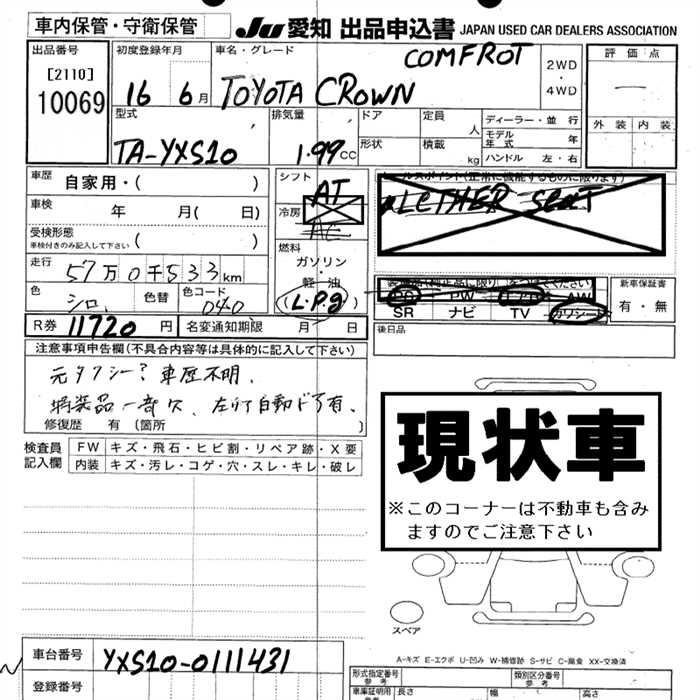 車内保管・守衛保管
JU 愛知 出品申込書 JAPAN USED CAR DEALERS ASSOCIATION
出品番号
[2110]
10069
初度登録年月
16 6月
車名・グレード
COMFROT
TOYOTA CROWN
2WD
・
4WD
評価点
—
外装 内装
型式
TA-YXS10
排気量
1.99cc
ドア
定員
人
形状
積載
kg
ディーラー・並行
モデル年式 年
ハンドル 左・右
車歴
自家用・( )
車検
年 月( 日)
受検形態
車検付きのみ記入して下さい
( )
走行
57万0千533km
色
シロ
色替
色コード
040
R券 11720 円
名変通知期限 月 日
シフト
AT
冷房
AC
燃料
ガソリン・
軽油
(L.P.g)
セールスポイント(正常に機能するものに限ります)
LETHER SeaT
PS PW エアB AW
SR ナビ TV カワシート
新車保証書
有・無
後日品
注意事項申告欄(不具合内容等は具体的に記入して下さい)
元タクシー？車歴不明、
装品一部欠、左リア自動ドア有、
修復歴 有 (箇所 )
検査員
記入欄
FW キズ・飛石・ヒビ割・リペア跡・X要
内装 キズ・汚レ・コゲ・穴・スレ・キレ・破レ
現状車
※このコーナーは不動車も含み
ますのでご注意下さい
スペア
A-キズ E-エクボ U-凹み W-補修跡 S-サビ C-腐食 XX-交換済
車台番号 YXS10-0111431
登録番号
形式指定番号
参考
類別区分番号
参考
車庫証明用
長さ
幅
高さ